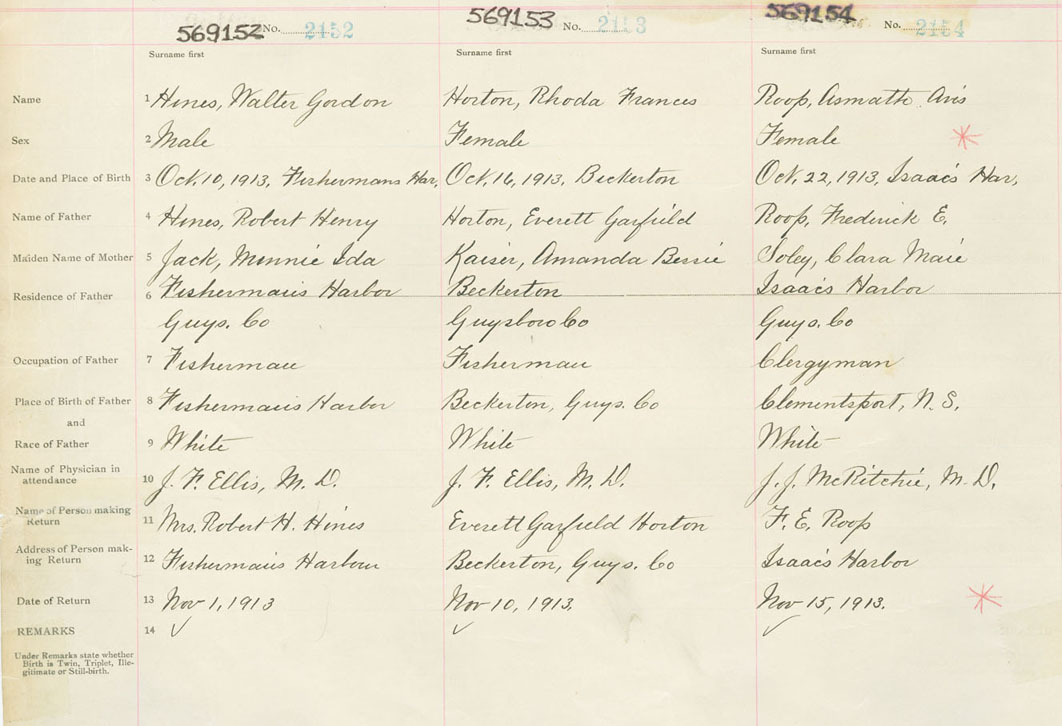 569152 No. 2152 569153 No. 2153 569154 No. 2154
Surname first Surname first Surname first
Name 1 Hines, Walter Gordon Horton, Rhoda Frances Roop, Asmath Avis
Sex 2 Male Female Female
Date and Place of Birth 3 Oct. 10, 1913, Fishermans Har, Oct. 16, 1913, Beckerton Oct. 22, 1913, Isaac's Har,
Name of Father 4 Hines, Robert Henry Horton, Everett Garfield Roop, Frederick E.
Maiden Name of Mother 5 Jack, Minnie Ida Kaiser, Amanda Bessie Soley, Clara Maie
Residence of Father 6 Fisherman's Harbor Beckerton Isaac's Harbor
Guys. Co Guysboro Co Guys. Co
Occupation of Father 7 Fisherman Fisherman Clergyman
Place of Birth of Father 8 Fisherman's Harbor Beckerton, Guys. Co Clementsport, N. S.
and
Race of Father 9 White White White
Name of Physician in
attendance 10 J. F. Ellis, M. D. J. F. Ellis, M. D. J. J. McRitchie, M. D.
Name of Person making
Return 11 Mrs. Robert H. Hines Everett Garfield Horton F. E. Roop
Address of Person mak-
ing Return 12 Fisherman's Harbour Beckerton, Guys. Co Isaac's Harbor
Date of Return 13 Nov 1, 1913 Nov 10, 1913. Nov 15, 1913.
REMARKS 14
Under Remarks state whether
Birth is Twin, Triplet, Ille-
gitimate or Still-birth.